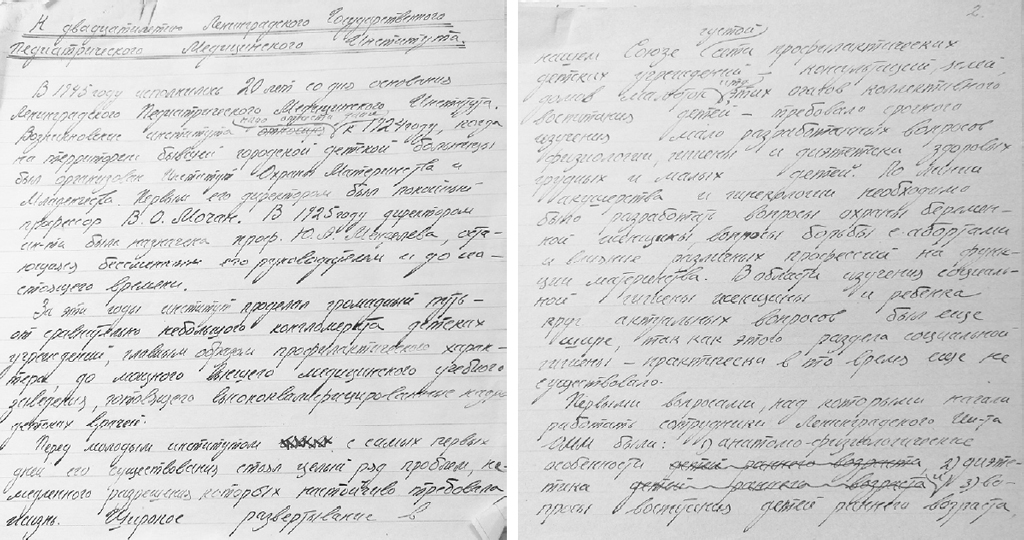 К двадцатилетию Ленинградского Государственного
Педиатрического Медицинского Института.
В 1945 году исполнилось 20 лет со дня основания
Ленинградского Педиатрического Медицинского Института.
Возникновение института надо отнести
относится к 1924 году, когда
на территории бывшей городской детской больницы
был организован Институт Охраны Материнства и
Младенчества. Первым его директором был покойный
профессор В. О. Мочан. В 1925 году директором
ин-та была назначена проф. Ю. А. Менделева, оста-
ющаяся бессменным его руководителем и до на-
стоящего времени.
За эти годы институт проделал громадный путь –
от сравнительно небольшого конгломерата детских
учреждений, главным образом профилактического харак-
тера, до мощного высшего медицинского учебного
заведения, готовящего высококвалифицированные кадры
детских врачей.
Перед молодым институтом с самых первых
дней его существования стоял целый ряд проблем, не-
медленного разрешения которых настойчиво требовала
жизнь. Широкое развертывание в
2.
густой
нашем Союзе сети профилактических
детских учреждений – консультаций, яслей,
домов малюток этих очагов коллективного
воспитания детей – требовало срочного
изучения мало разработанных вопросов
физиологии, гигиены и диэтетики здоровых
грудных и малых детей. По линии
акушерства и гинекологии необходимо
было разработать вопросы охраны беремен-
ной женщины, вопросы борьбы с абортами
и влияние различных профессий на функ-
ции материнства. В области изучения социаль-
ной гигиены женщины и ребенка
круг актуальных вопросов был еще
шире, так как этого раздела социальной
гигиены – практически в то время еще не
существовало.
Первыми вопросами, над которыми начали
работать сотрудники Ленинградского Ин-та
ОММ были: 1) анатомо-физиологические
особенности детей раннего возраста, 2) диэте-
тика детей раннего возраста и 3) во-
просы воспитания детей раннего возраста,